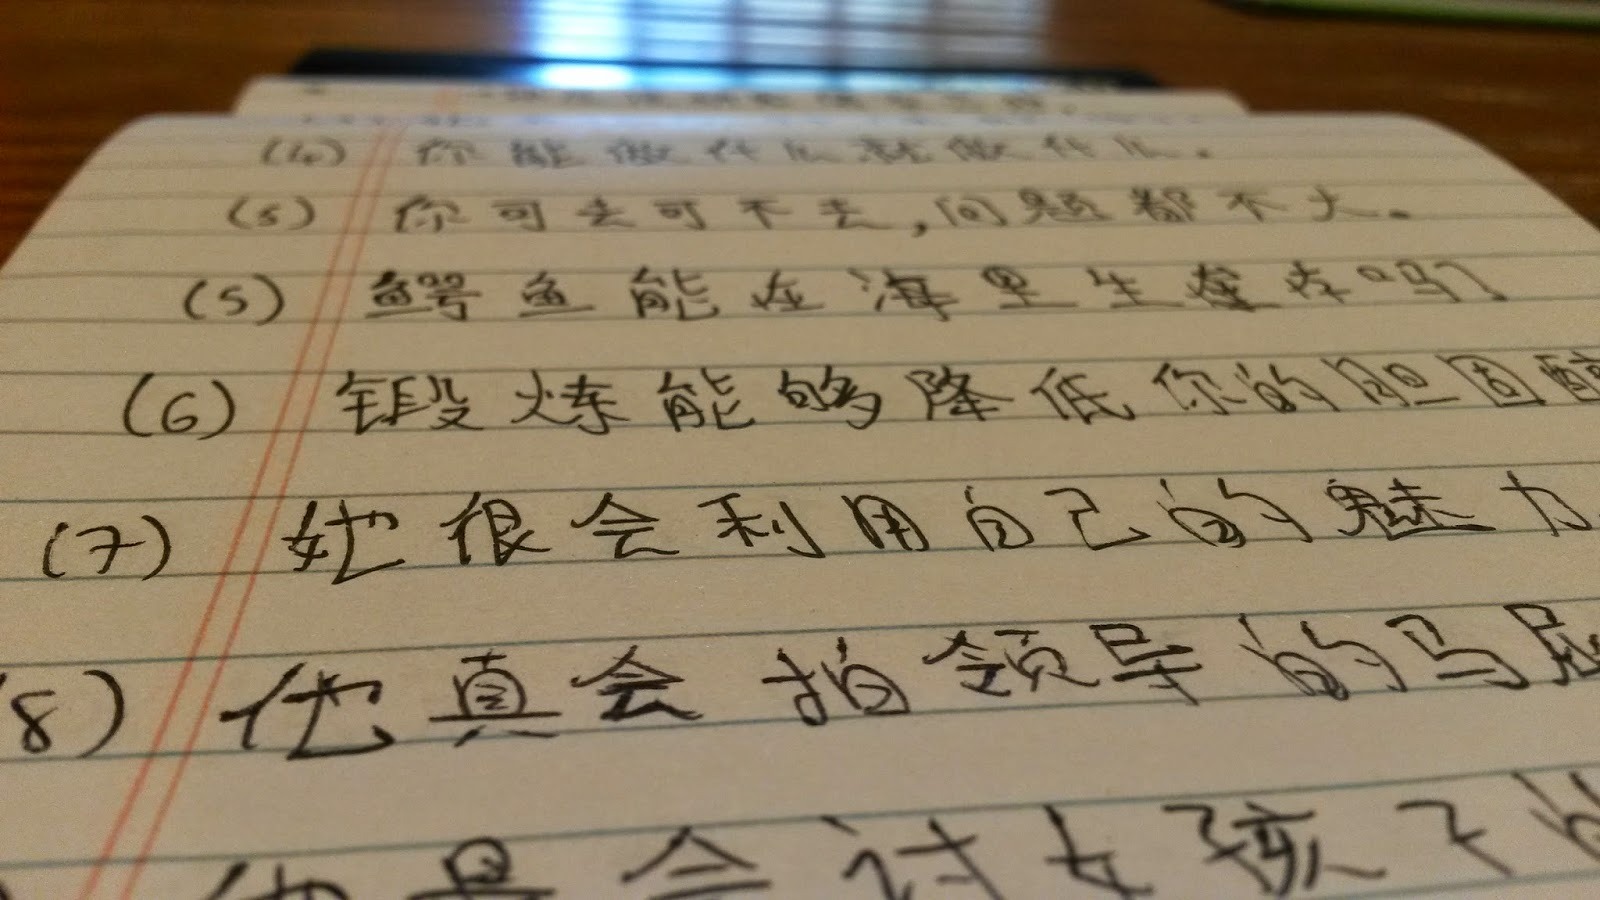 (4) 你能做什么就做什么。
(5) 你可去可不去,问题都不大。
(5) 鳄鱼能在海里生存吗?
(6) 锻炼能够降低你的胆固醇
(7) 她很会利用自己的魅力
(8) 他真会拍领导的马屁
会讨女孩子的